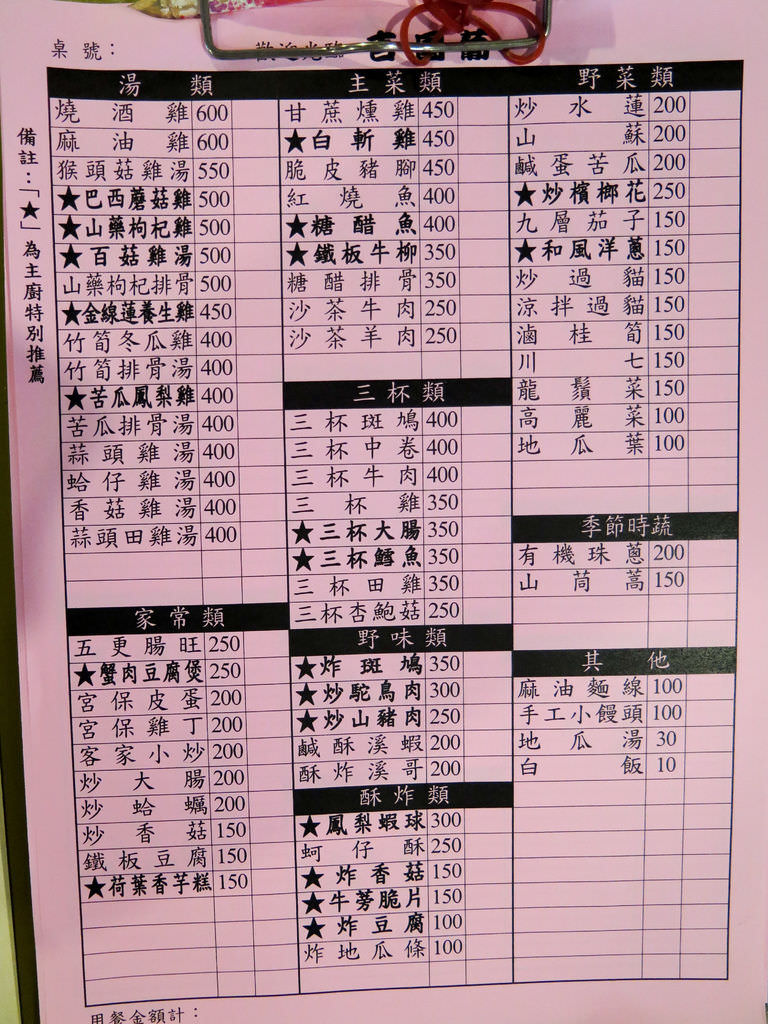 桌號：
歡迎光臨
備註：「★」為主廚特別推薦
湯類
燒酒雞 600
麻油雞 600
猴頭菇雞湯 550
★巴西蘑菇雞 500
★山藥枸杞雞 500
★百菇雞湯 500
山藥枸杞排骨 500
★金線蓮養生雞 450
竹筍冬瓜雞 400
竹筍排骨湯 400
★苦瓜鳳梨雞 400
苦瓜排骨湯 400
蒜頭雞湯 400
蛤仔雞湯 400
香菇雞湯 400
蒜頭田雞湯 400
家常類
五更腸旺 250
★蟹肉豆腐煲 250
宮保皮蛋 200
宮保雞丁 200
客家小炒 200
炒大腸 200
炒蛤蠣 200
炒香菇 150
鐵板豆腐 150
★荷葉香芋糕 150
主菜類
甘蔗燻雞 450
★白斬雞 450
脆皮豬腳 450
紅燒魚 400
★糖醋魚 400
★鐵板牛柳 350
糖醋排骨 350
沙茶牛肉 250
沙茶羊肉 250
三杯類
三杯斑鳩 400
三杯中卷 400
三杯牛肉 400
三杯雞 350
★三杯大腸 350
★三杯鱈魚 350
三杯田雞 350
三杯杏鮑菇 250
野味類
★炸斑鳩 350
★炒駝鳥肉 300
★炒山豬肉 250
鹹酥溪蝦 200
酥炸溪哥 200
酥炸類
★鳳梨蝦球 300
蚵仔酥 250
★炸香菇 150
★牛蒡脆片 150
★炸豆腐 100
炸地瓜條 100
野菜類
炒水蓮 200
山蘇 200
鹹蛋苦瓜 200
★炒檳榔花 250
九層茄子 150
★和風洋蔥 150
炒過貓 150
涼拌過貓 150
滷桂筍 150
川七 150
龍鬚菜 150
高麗菜 100
地瓜葉 100
季節時蔬
有機珠蔥 200
山茼蒿 150
其他
麻油麵線 100
手工小饅頭 100
地瓜湯 30
白飯 10
用餐金額計：